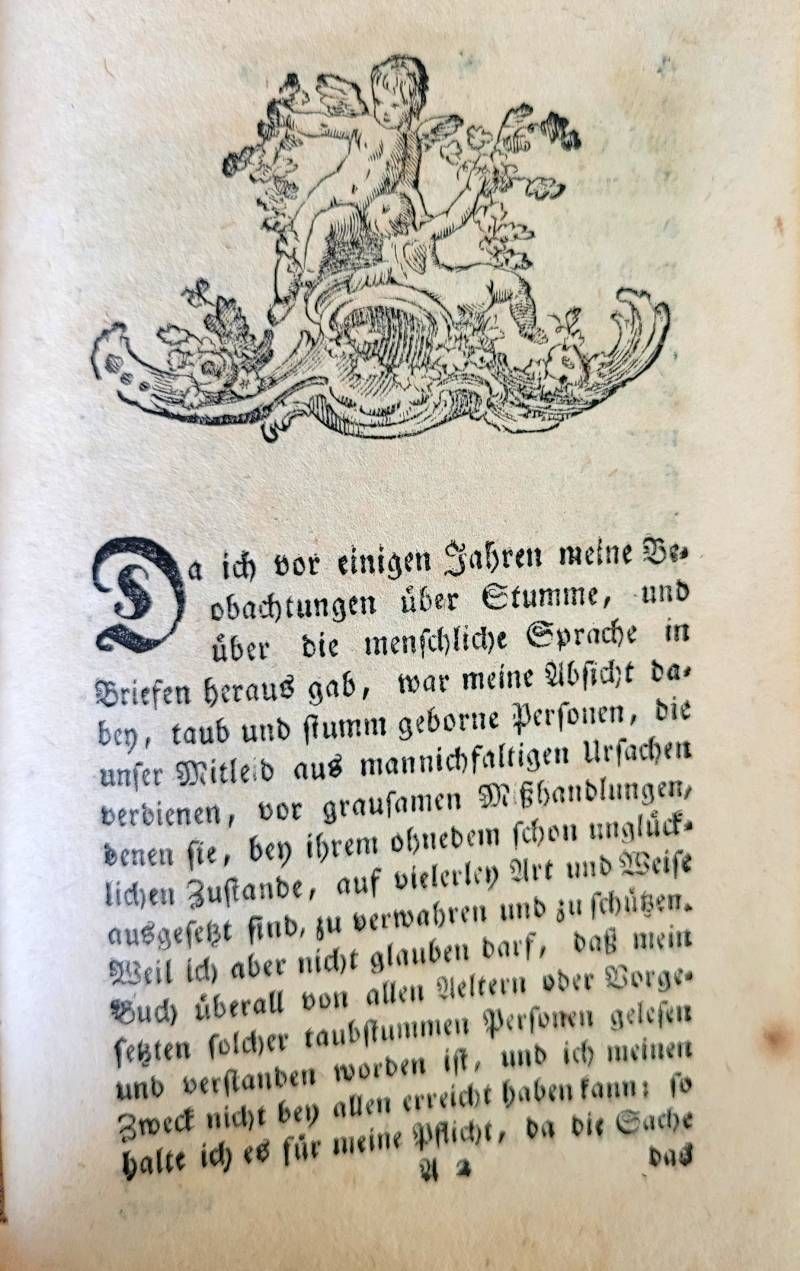 Da ich vor einigen Jahren meine Be-
obachtungen über Stumme, und
über die menschliche Sprache in
Briefen heraus gab, war meine Absicht da-
bey, taub und stumm geborne Personen, die
unser Mitleid aus mannichfaltigen Ursachen
verdienen, vor grausamen Mißhandlungen,
denen sie, bey ihrem ohnedem schon unglück-
lichen Zustande, auf vielerley Art und Weise
ausgesetzt sind, zu verwahren und zu schützen.
Weil ich aber nicht glauben darf, daß mein
Buch überall von allen Aeltern oder Vorge-
setzten solcher taubstummen Personen gelesen
und verstanden worden ist, und ich meinen
Zweck nicht bey allen erreicht haben kann; so
halte ich es für meine Pflicht, da die Sache
A 2 das